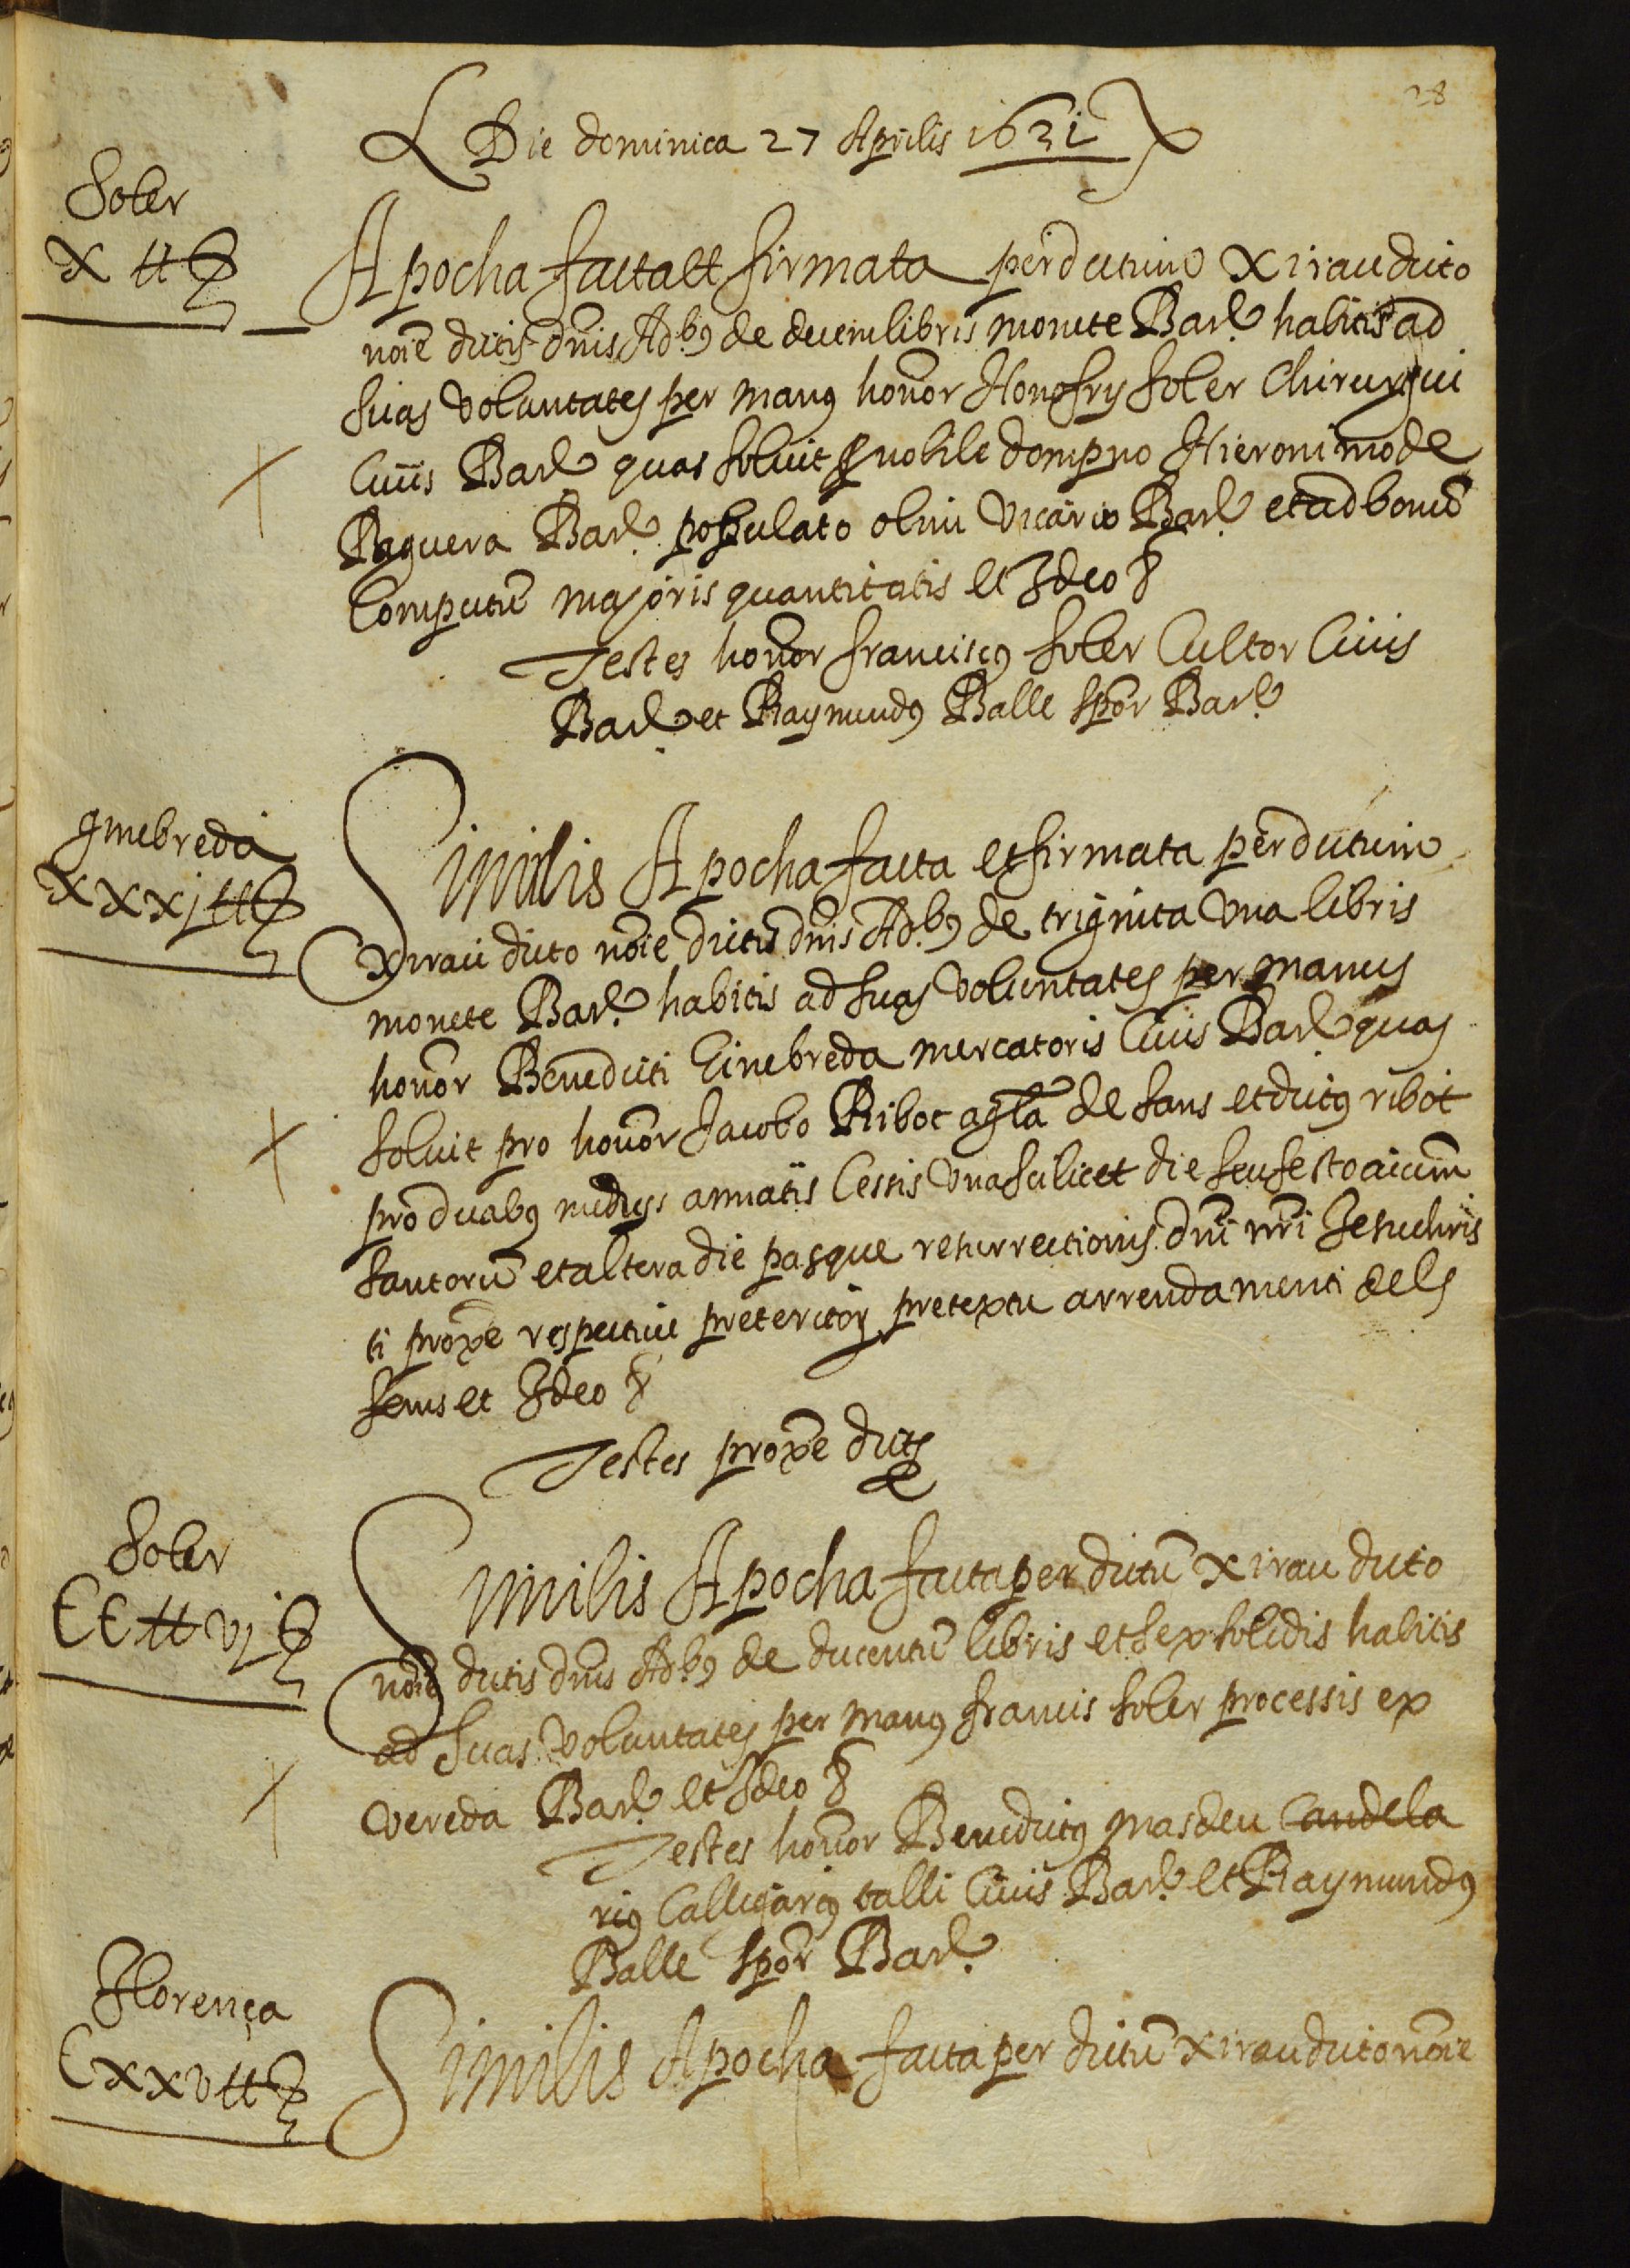 28
Die dominica 27 Aprilis 1631
Soler
X ℔
Apocha facta et firmata per dictum Xirau dicto
noīe dictis dn̄is Adb9 de decem libris monete Barl̄ habitis ad
suas voluntates per man9 honōr Honofrÿ Soler Chirurgui
Civis Barl̄ quas solvit ꝓ nobile dompno Hieronimo de
Paguera Barl̄ populato olim vicario Barl̄ et ad bonū
Computū majoris quantitatis et Ideo ꝛ
Testes honōr francisc9 soler Cultor Civis
Barl̄ et Raymund9 Balle sp̄or Barl̄
ginebreda
XXXj ℔
Similis Apocha facta et firmata per dictum
Xirau dicto noīe dictis dn̄is Adb9 de triginta una libris
monete Barl̄ habitis ad suas voluntates per manus
honōr Benedicti Ginebreda mercatoris Civis Barl̄ quas
solvit pro honōr Jacobo Ribot agl̄a de Sans et dict9 ribot
pro duab9 medijs annatis Cessis una scilicet die seu festo oīum
Santorū et altera die pasque resurrectionis dn̄i nr̄i Jesuchris
ti prox̄e respective preteritōr pretextu arrendamenti dels
fems et Ideo ꝛ
Testes prox̄e dicti
Soler
CC ℔ vj
Similis Apocha facta per dictū Xirau dicto
noīe dictis dn̄is Adb9 de ducentū libris et sex solidis habitis
ad suas voluntates per man9 francis soler processis ex
vereda Barl̄ et Ideo ꝛ
Testes honōr Benedict9 masdeu Candela
ri9 Calligari9 talli Civis Barl̄ et Raymund9
Balle sp̄or Barl̄
Florença
CXXV ℔
Similis Apocha facta per dictū Xirau dicto noīe